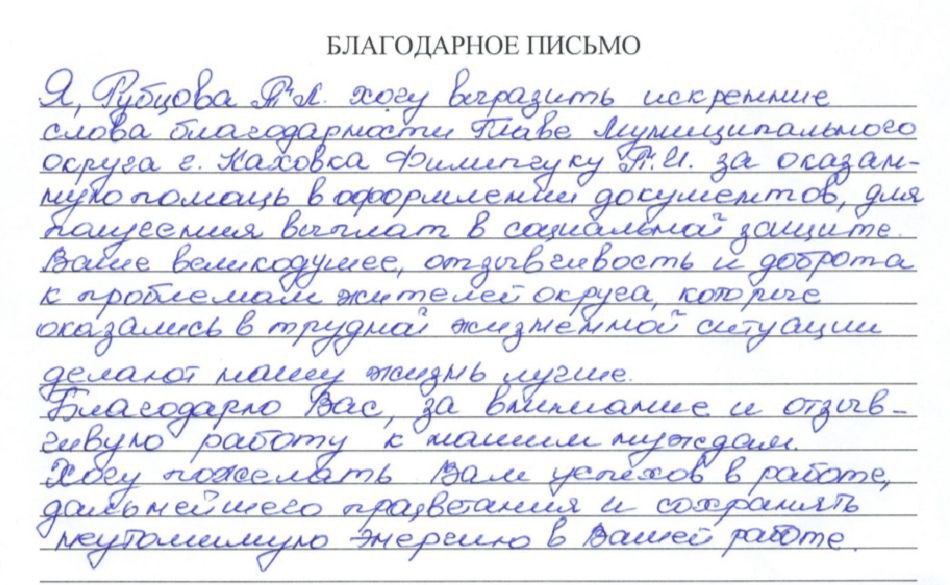 БЛАГОДАРНОЕ ПИСЬМО
Я, Рубцова Т.Л. хочу выразить искренние
слова благодарности Главе Муниципального
округа г. Каховка Филипчуку П.И. за оказан-
ную помощь в оформлении документов, для
получения выплат в социальной защите.
Ваше великодушее, отзывчивость и доброта
к проблемам жителей округа, которые
оказались в трудной жизненной ситуации
делают нашу жизнь лучше.
Благодарю Вас, за внимание и отзыв-
чивую работу к нашим нуждам.
Хочу пожелать Вам успехов в работе,
дальнейшего процветания и сохранять
неутомимую энергию в Вашей работе.